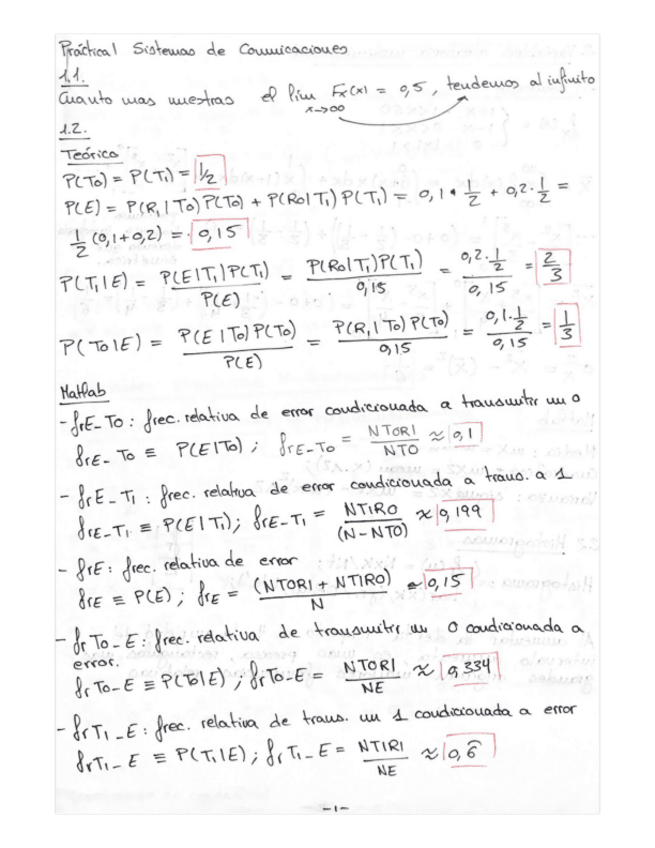 Práctica 1 Sistemas de Comunicaciones
1.1.
Cuanto mas muestras el lim Fx(x) = 0,5, tendemos al infinito
x→∞
1.2.
Teórico
P(T0) = P(T1) = 1/2
P(E) = P(R1|T0) P(T0) + P(R0|T1) P(T1) = 0,1 · 1/2 + 0,2 · 1/2 =
1/2 (0,1+0,2) = 0,15
P(T1|E) = P(E|T1)P(T1) / P(E) = P(R0|T1)P(T1) / 0,15 = 0,2 · 1/2 / 0,15 = 2/3
P(T0|E) = P(E|T0)P(T0) / P(E) = P(R1|T0) P(T0) / 0,15 = 0,1 · 1/2 / 0,15 = 1/3
Matlab
- frE_T0 : frec. relativa de error condicionada a transmitir un 0
frE_T0 ≡ P(E|T0) ; frE_T0 = NT0R1 / NT0 ≈ 0,1
- frE_T1 : frec. relativa de error condicionada a trans. a 1
frE_T1 ≡ P(E|T1); frE_T1 = NT1R0 / (N-NT0) ≈ 0,199
- frE: frec. relativa de error
frE ≡ P(E) ; frE = (NT0R1 + NT1R0) / N ≈ 0,15
- frT0_E: frec. relativa de transmitir un 0 condicionada a
error.
frT0_E ≡ P(T0|E) ; frT0_E = NT0R1 / NE ≈ 0,334
- frT1_E: frec. relativa de trans. un 1 condicionada a error
frT1_E ≡ P(T1|E) ; frT1_E = NT1R1 / NE ≈ 0,6̂
-1-